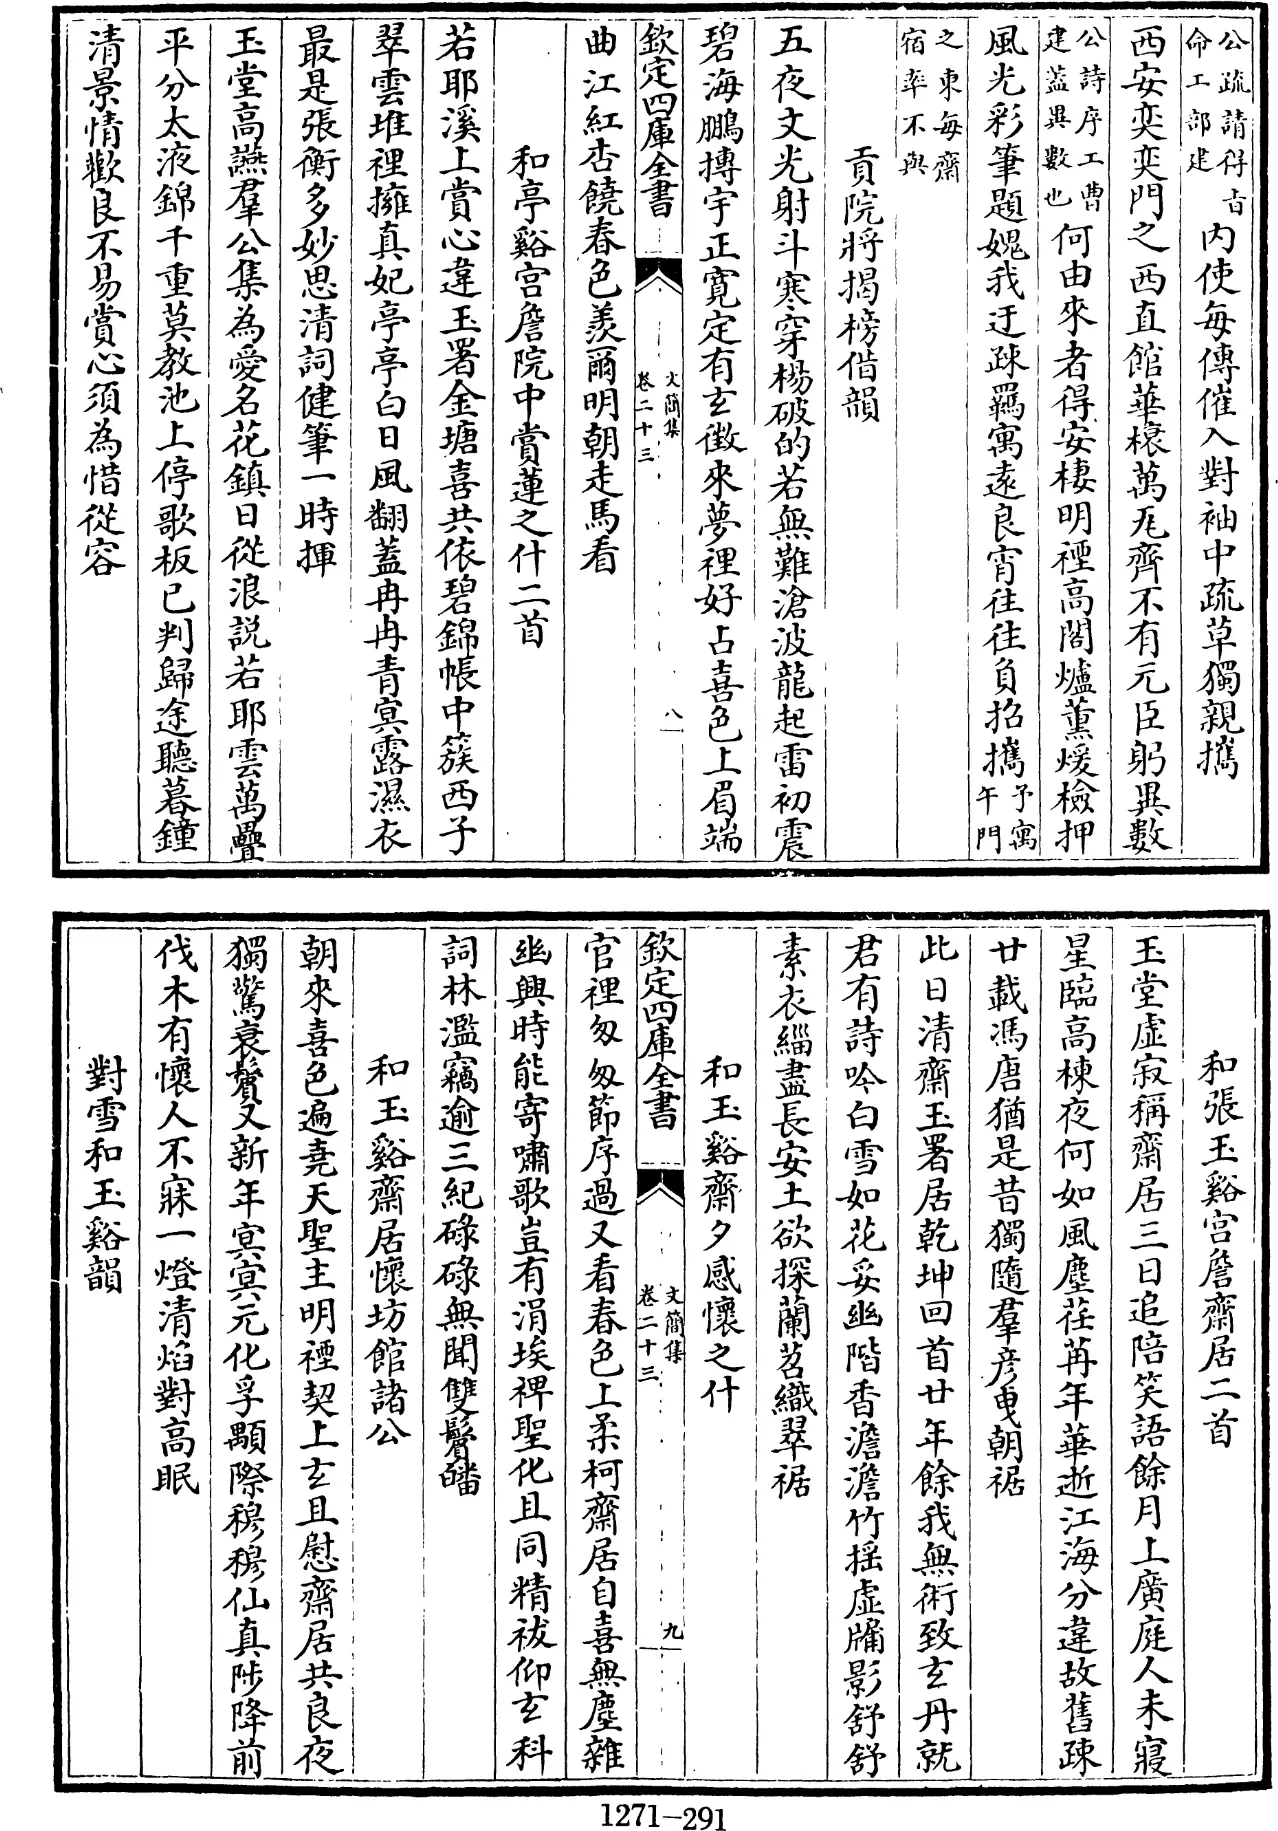 公疏請得旨
命工部建
内使每傳催入對袖中疏草獨親攜
西安奕奕門之西直館華榱萬瓦齊不有元臣躬異數
公詩序工曹
建蓋異數也
何由來者得安棲明禋高閣爐薰煖檢押
風光彩筆題媿我迂疎羈寓遠良宵往往負招攜
予寓
午門
之東每齋
宿率不與
貢院將揭榜借韻
五夜文光射斗寒穿楊破的若無難滄波龍起雷初震
碧海鵬摶宇正寛定有玄徵來夢裡好占喜色上眉端
欽定四庫全書
文簡集
卷二十三
八
曲江紅杏饒春色羨爾明朝走馬看
和亭谿宫詹院中賞蓮之什二首
若耶溪上賞心違玉署金塘喜共依碧錦帳中簇西子
翠雲堆裡擁真妃亭亭白日風翻蓋冉冉青冥露濕衣
最是張衡多妙思清詞健筆一時揮
玉堂高讌羣公集為愛名花鎮日從浪説若耶雲萬疊
平分太液錦千重莫教池上停歌板已判歸途聽暮鐘
清景情歡良不易賞心須為惜從容
和張玉谿宫詹齋居二首
玉堂虛寂稱齋居三日追陪笑語餘月上廣庭人未寢
星臨高棟夜何如風塵荏苒年華逝江海分違故舊疎
廿載馮唐猶是昔獨隨羣彦曳朝裾
此日清齋玉署居乾坤回首廿年餘我無術致玄丹就
君有詩吟白雪如花妥幽階香澹澹竹搖虛牖影舒舒
素衣緇盡長安土欲探蘭苕織翠裾
和玉谿齋夕感懷之什
欽定四庫全書
文簡集
卷二十三
九
官裡匆匆節序過又看春色上柔柯齋居自喜無塵雜
幽興時能寄嘯歌豈有涓埃禆聖化且同精祓仰玄科
詞林濫竊逾三紀碌碌無聞雙鬢皤
和玉谿齋居懷坊館諸公
朝來喜色遍堯天聖主明禋契上玄且慰齋居共良夜
獨驚衰鬢又新年冥冥元化孚顒際穆穆仙真陟降前
伐木有懷人不寐一燈清焰對高眠
對雪和玉谿韻
1271—291